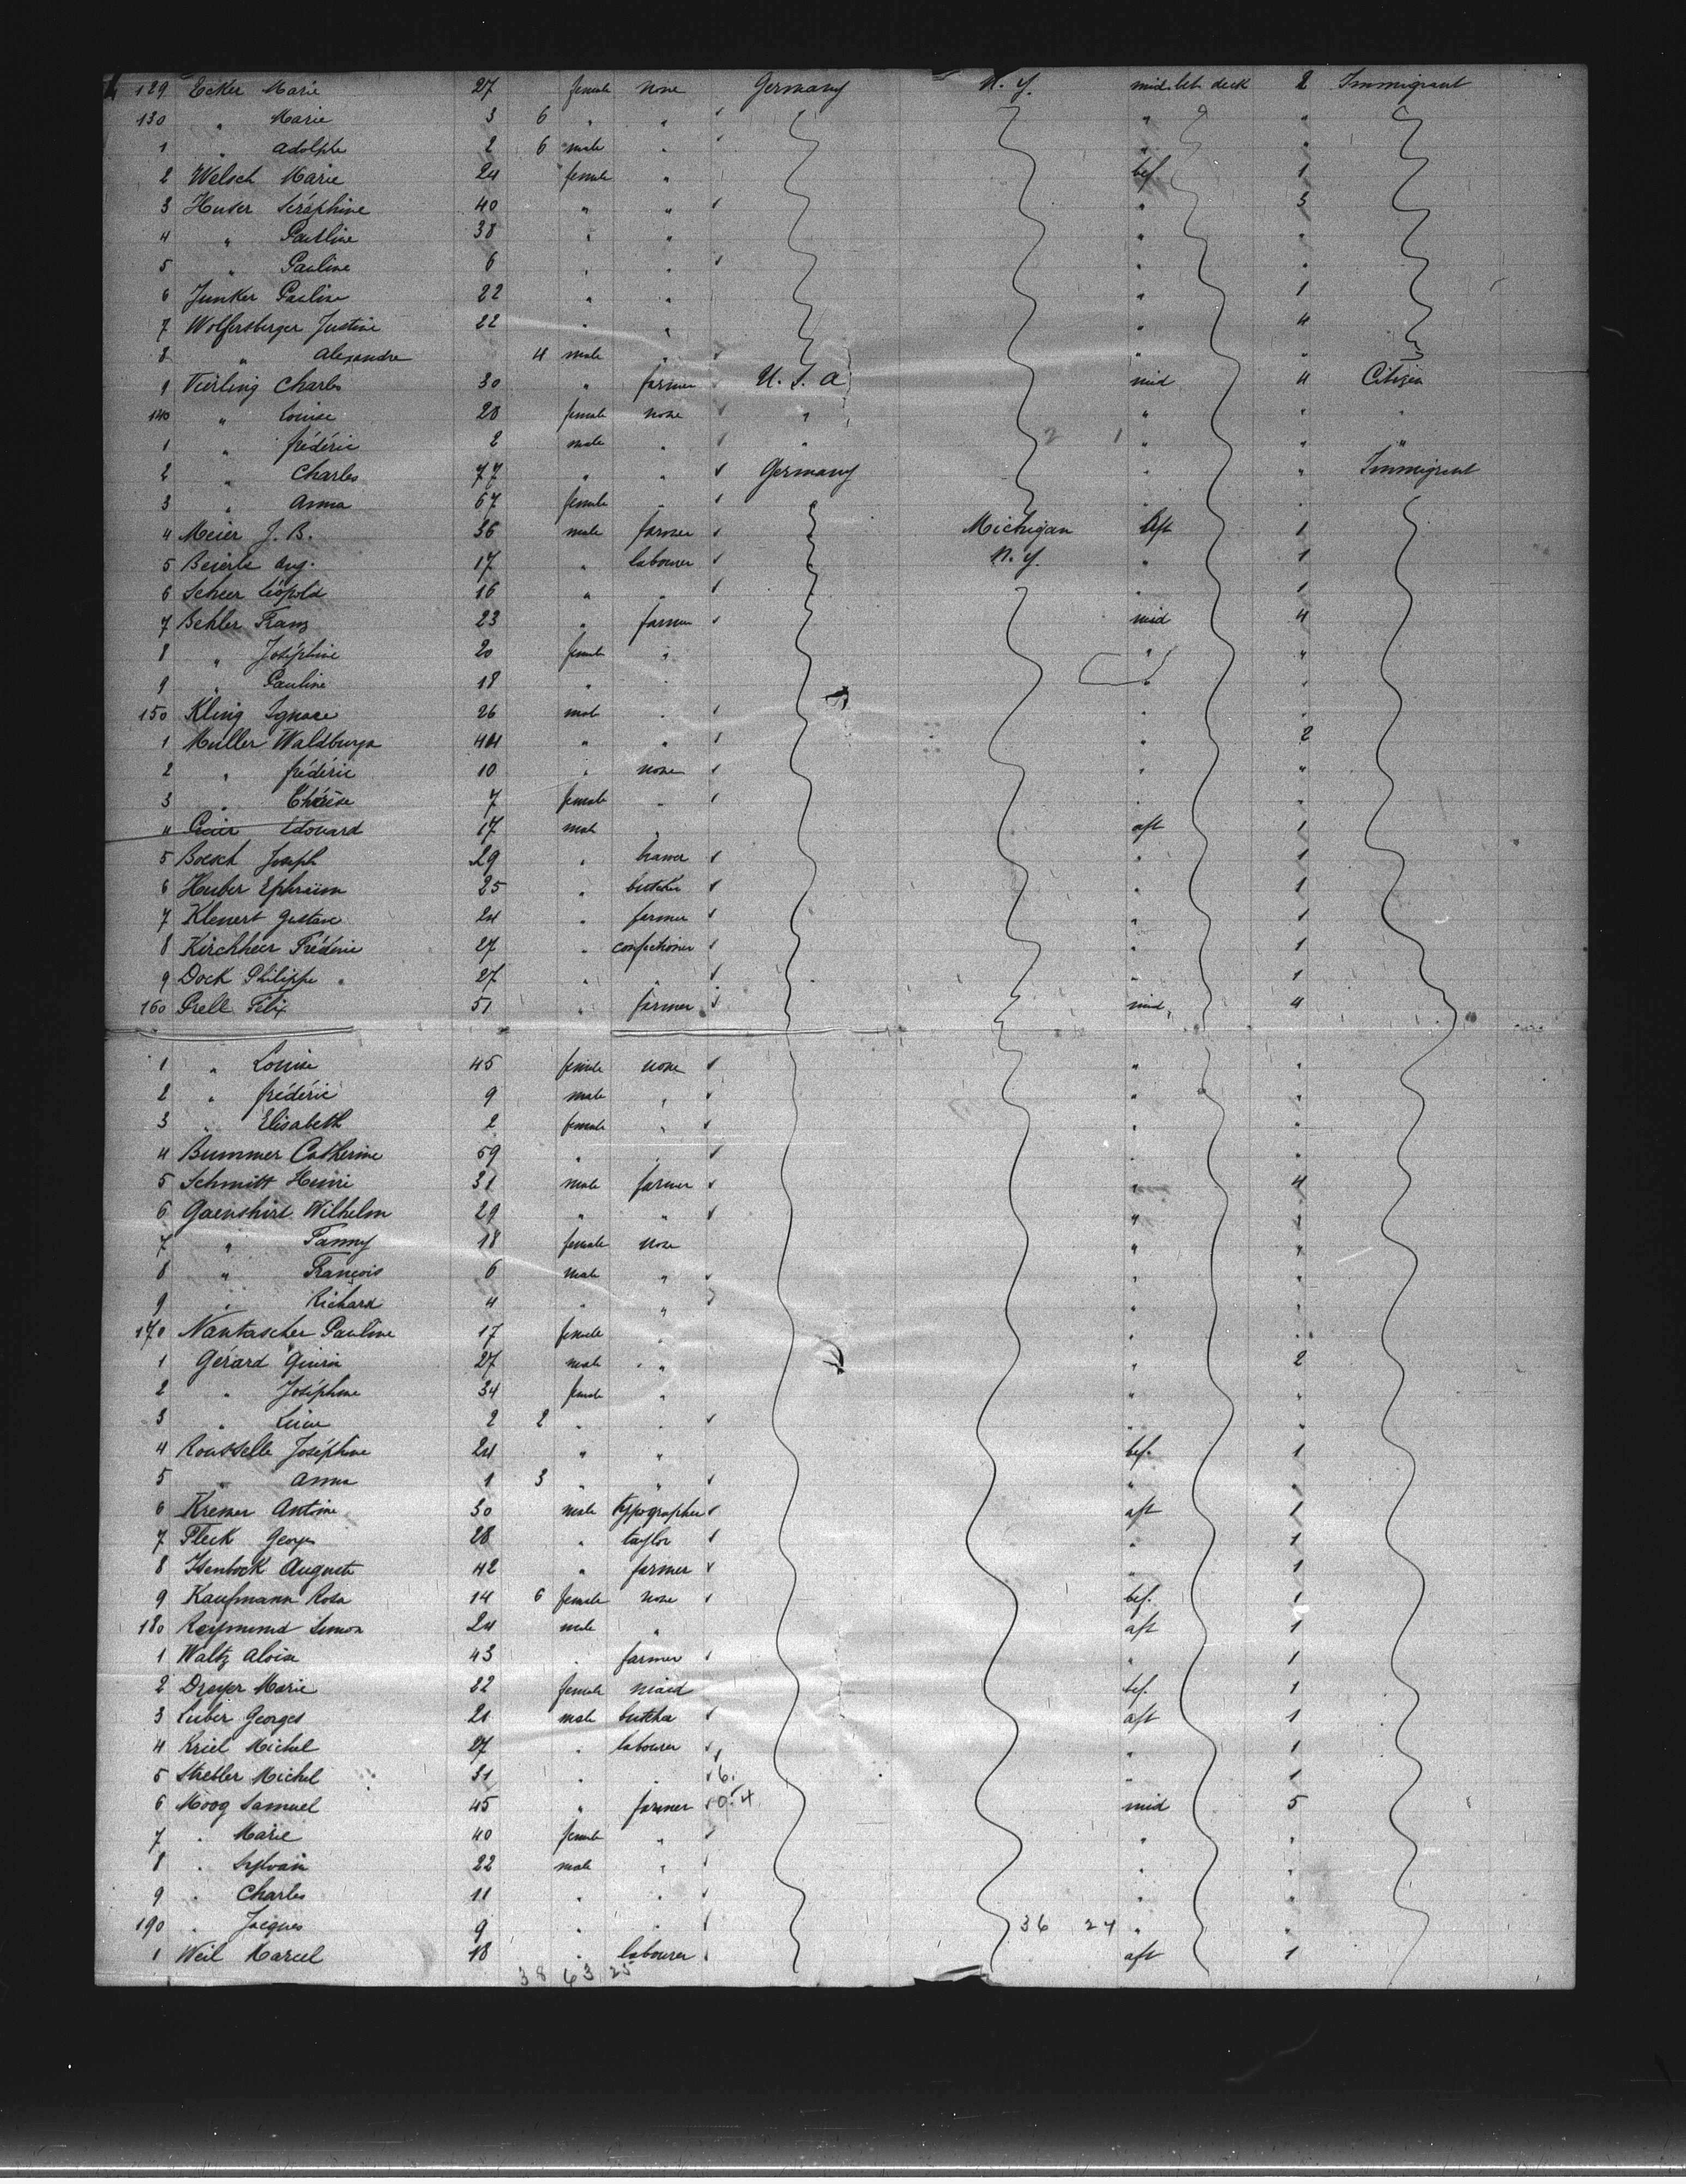 129 Ecker Marie 27 female none Germany N. Y. mid. bet. deck 2 Immigrant
130 " Marie 3 6 " " "
1 " Adolphe 2 6 male " " "
2 Welsch Marie 24 female " bef. 1
3 Huser Séraphine 40 " " " 3
4 " Pauline 38 " " " "
5 " Pauline 6 " " " "
6 Junker Pauline 22 " " " 1
7 Wolfersberger Justine 22 " " " 4
8 " Alexandre 4 male " " "
9 Vierling Charles 30 " farmer U. S. A mid 4 Citizen
140 " Louise 28 female none " " " "
1 " frédéric 2 male " " 2 1 " " "
2 " Charles 77 " " Germany " " Immigrant
3 " Anna 67 female " " "
4 Meier J. B. 36 male farmer Michigan Aft 1
5 Beierle Aug. 17 " labourer N. Y. " 1
6 Scheer Léopold 16 " " " 1
7 Behler Franz 23 " farmer mid 4
8 " Joséphine 20 female " " "
9 " Pauline 18 " " " "
150 Kling Ignace 26 male " " "
1 Muller Waldburga 44 " " " 2
2 " frédéric 10 " none " "
3 " Thérèse 7 female " " "
4 Edouard 17 male " aft 1
5 Boesch Joseph 29 " " 1
6 Huber Ephraim 25 " butcher " 1
7 Klenert Gustave 24 " farmer " 1
8 Kirchheer Frédéric 27 " confectioner " 1
9 Dock Philippe 27 " " " 1
160 Grell Felix 51 " farmer mid. 4
1 " Louise 45 female none " "
2 " frédéric 9 male " " "
3 " Elisabeth 2 female " " "
4 Bummer Catherine 59 " " " "
5 Schmitt Henri 31 male farmer " 4
6 Gaenshirt Wilhelm 29 " " "
7 " Fanny 18 female none " "
8 " François 6 male " " "
9 " Richard 4 " " " "
170 Nantascher Pauline 17 female " " "
1 Gérard Quirin 27 male " " 2
2 " Joséphine 34 female " " "
3 " 2 2 " " " "
4 Rousselle Joséphine 24 " " bef. 1
5 " Anna 1 3 " " " "
6 Kremer Antoine 30 male typographer aft 1
7 Fleck Georges 28 " taylor " 1
8 Isenbock Auguste 42 " farmer " 1
9 Kaufmann Rosa 14 6 female none bef. 1
180 Raymond Simon 24 male " aft 1
1 Waltz Aloise 43 " farmer " 1
2 Dreyer Marie 22 female maid bef. 1
3 Luber Georges 21 male butcher aft 1
4 Kriel Michel 27 " labourer " 1
5 Strebler Michel 31 " " 6. " 1
6 Moog Samuel 45 " farmer mid 5
7 " Marie 40 female " " "
8 " Sylvain 22 male " " "
9 " Charles 11 " " " "
190 " Jacques 9 " " 36 24 " "
1 Weil Marcel 18 " labourer aft 1
38 63 25